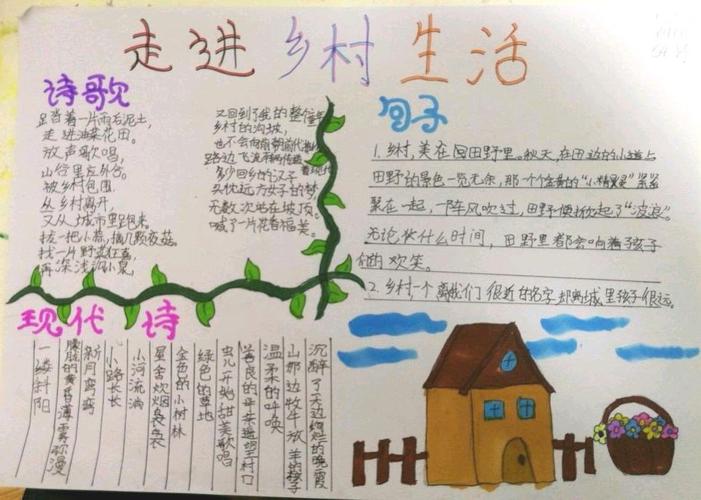 走进乡村生活
诗歌
足踏着一片雨后泥土,
走进油菜花田。
放声歌唱,
山谷里
被乡村包围
从乡村离开,
又从城市里跑来。
拔一把小蒜,摘几颗夜菇。
找一片野
再深浅
又回到了我的整个童年
乡村的沟坡,
也不会
路边飞流
多少回乡的汉子
头枕远方女子的梦
无数次站在坡顶。
喊了一片花香福美。
句子
1.乡村,美在田野里。秋天,在田边的小道上
田野的景色一览无余,那一个个金黄的“小精灵”紧紧
聚在一起,一阵风吹过,田野便掀起了“波浪”。
无论什么时间,田野里都会响着孩子
们的欢笑。
2.乡村一个离我们很近的名字却离城里孩子很远。
现代诗
沉醉了天边绚烂的晚霞
山那边牧牛放羊的孩子
温柔的呼唤
善良的母亲
虫儿开始甜美歌唱
绿色的草地
金色的小树林
星舍炊烟袅袅
小河流淌
小路长长
新月弯弯
朦胧的黄昏薄雾弥漫
一缕斜阳